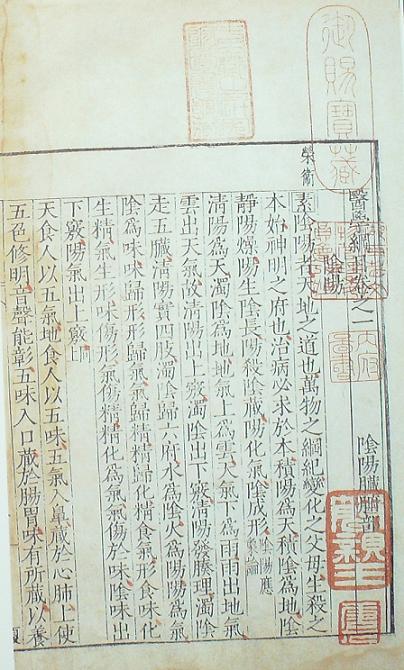 御賜寶藏
醫學綱目卷之二
陰陽臟腑部
陰陽
榮衛
素陰陽者天地之道也萬物之綱紀變化之父母生殺之
本始神明之府也治病必求於本積陽為天積陰為地陰
靜陽燥陽生陰長陽殺陰藏陽化氣陰成形陰陽應象論
清陽為天濁陰為地地氣上為雲天氣下為雨雨出地氣
雲出天氣故清陽出上竅濁陰出下竅清陽發腠理濁陰
走五臟清陽實四肢濁陰歸六府水為陰火為陽陽為氣
陰為味味歸形形歸氣氣歸精精歸化精食氣形食味化
生精氣生形味傷形氣傷精精化為氣氣傷於味陰味出
下竅陽氣出上竅
天食人以五氣地食人以五味五氣入鼻藏於心肺上使
五色修明音聲能彰五味入口藏於腸胃味有所藏以養